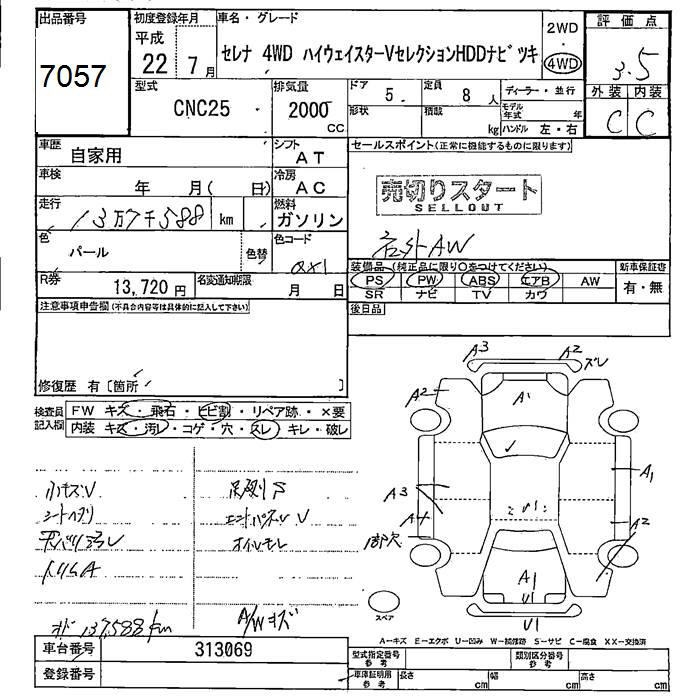 出品番号
7057
初度登録年月
平成
22 7月
車名・グレード
セレナ 4WD ハイウェイスターVセレクションHDDナビツキ
2WD
4WD
評価点
3.5
外装 内装
C C
型式
CNC25
排気量
2000
CC
ドア
5
定員
8人
形状
積載
kg
ディーラー・並行
モデル年式 年
ハンドル 左・右
車歴
自家用
シフト
AT
車検
年 月( 日)
冷房
AC
走行
13万7千588 km
燃料
ガソリン
色
パール
色替
色コード
QX1
R券
13,720円
名変通知期限
月 日
セールスポイント(正常に機能するものに限ります)
売切りスタート
SELLOUT
社外AW
装備品(純正品に限り○をつけてください)
PS PW ABS エアB AW
SR ナビ TV カワ
新車保証書
有・無
後日品
注意事項申告欄(不具合内容等は具体的に記入して下さい)
修復歴 有〔箇所 〕
検査員記入欄
FW キズ・飛石・ヒビ割・リペア跡・×要
内装 キズ・汚レ・コゲ・穴・スレ・キレ・破レ
小キズV
トリムA
オド 137,588km
A/Wキズ
A3
A2
ズレ
A2
A1
A1
A3
A2
脚欠
A1
U1
U1
スペア
A-キズ E-エクボ U-凹み W-補修跡 S-サビ C-腐食 XX-交換済
車台番号
313069
登録番号
型式指定番号
参考
類別区分番号
参考
車庫証明用
参考
長さ cm
幅 cm
高さ cm